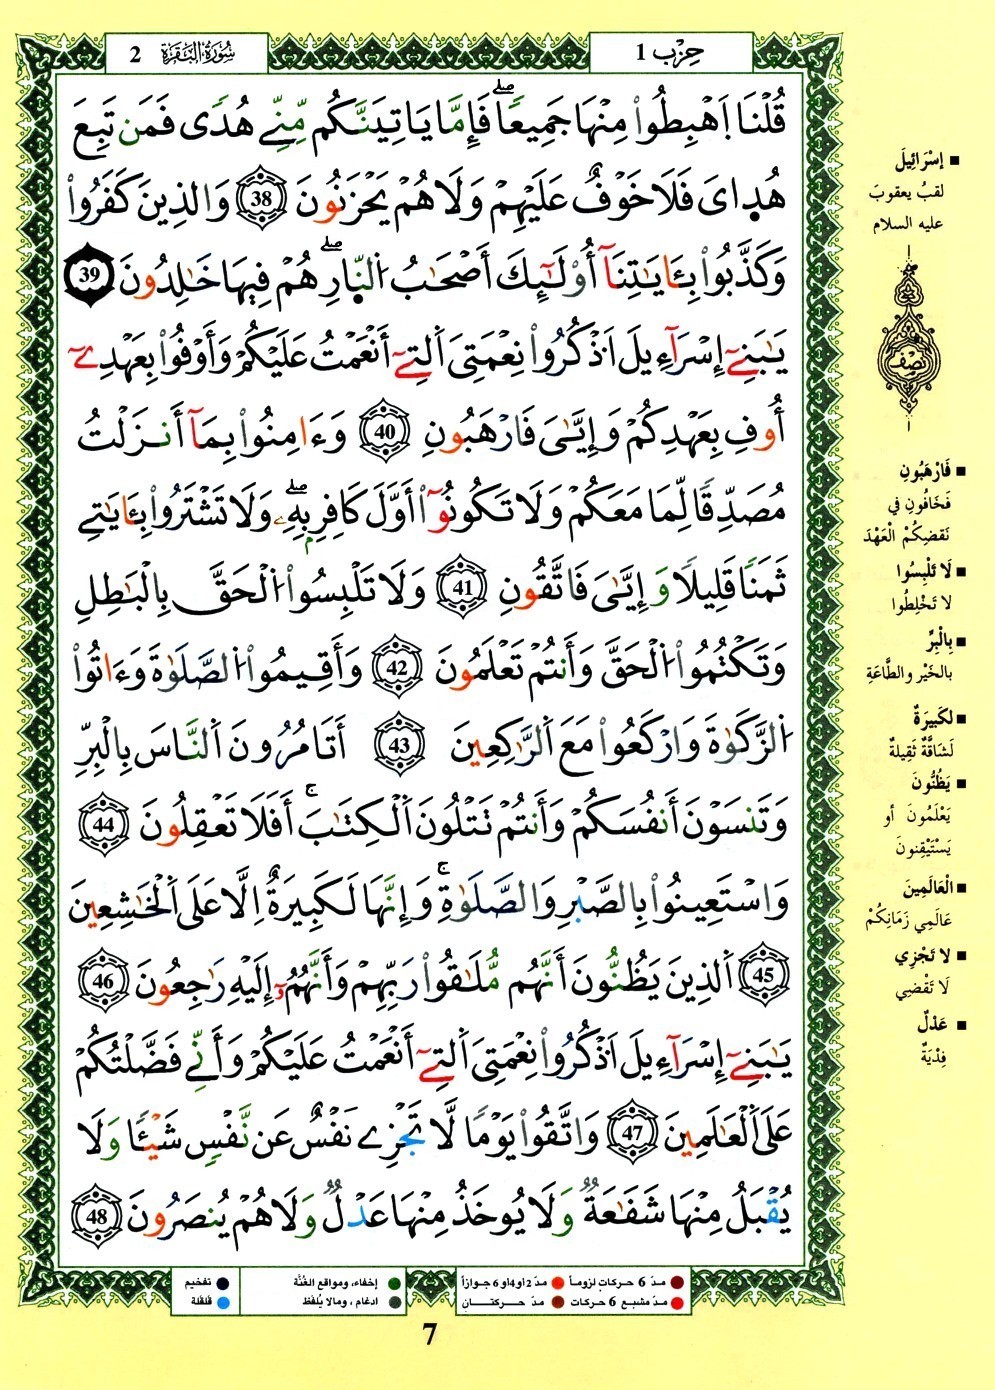 حِزْب 1
سُورَةُ البَقَرَةِ 2
قُلْنَا اَهْبِطُواْ مِنْهَا جَمِيعاًۖ فَإِمَّا يَاتِيَنَّكُم مِّنِّے هُدًى فَمَن تَبِعَ
هُدَايَ فَلَا خَوْفٌ عَلَيْهِمْ وَلَا هُمْ يَحْزَنُونَ 38 وَالذِينَ كَفَرُواْ
وَكَذَّبُواْ بِـَٔايَٰتِنَآ أُوْلَٰٓئِكَ أَصْحَٰبُ اُ۬لنّ۪ارِۖ هُمْ فِيهَا خَٰلِدُونَ 39
يَٰبَنِےٓ إِسْرَآءِيلَ اَذْكُرُواْ نِعْمَتِيَ اَلتِےٓ أَنْعَمْتُ عَلَيْكُمْ وَأَوْفُواْ بِعَهْدِےٓ
أُوفِ بِعَهْدِكُمْ وَإِيَّٰيَ فَارْهَبُونِ 40 وَءَامِنُواْ بِمَآ أَنزَلْتُ
مُصَدِّقاً لِّمَا مَعَكُمْ وَلَا تَكُونُوٓاْ أَوَّلَ كَافِرِۢ بِهِۦۖ وَلَا تَشْتَرُواْ بِـَٔايَٰتِے
ثَمَناً قَلِيلاً وَإِيَّٰيَ فَاتَّقُونِ 41 وَلَا تَلْبِسُواْ اُ۬لْحَقَّ بِالْبَٰطِلِ
وَتَكْتُمُواْ اُ۬لْحَقَّ وَأَنتُمْ تَعْلَمُونَ 42 وَأَقِيمُواْ اُ۬لصَّلَوٰةَ وَءَاتُواْ
اُ۬لزَّكَوٰةَ وَارْكَعُواْ مَعَ اَلرَّٰكِعِينَ 43 أَتَامُرُونَ اَلنَّاسَ بِالْبِرِّ
وَتَنسَوْنَ أَنفُسَكُمْ وَأَنتُمْ تَتْلُونَ اَلْكِتَٰبَۚ أَفَلَا تَعْقِلُونَ 44
وَاسْتَعِينُواْ بِالصَّبْرِ وَالصَّلَوٰةِۚ وَإِنَّهَا لَكَبِيرَةٌ اِلَّا عَلَى اَلْخَٰشِعِينَ
45 اَلذِينَ يَظُنُّونَ أَنَّهُم مُّلَٰقُواْ رَبِّهِمْ وَأَنَّهُمُۥٓ إِلَيْهِ رَٰجِعُونَ 46
يَٰبَنِےٓ إِسْرَآءِيلَ اَذْكُرُواْ نِعْمَتِيَ اَلتِےٓ أَنْعَمْتُ عَلَيْكُمْ وَأَنِّے فَضَّلْتُكُمْ
عَلَى اَلْعَٰلَمِينَ 47 وَاتَّقُواْ يَوْماً لَّا تَجْزِے نَفْسٌ عَن نَّفْسٍ شَيْـٔاً وَلَا
يُقْبَلُ مِنْهَا شَفَٰعَةٌ وَلَا يُوخَذُ مِنْهَا عَدْلٌ وَلَا هُمْ يُنصَرُونَ 48
■ إسْرَائِيلَ
لقبُ يعقوبَ
عليه السلام
نِصْف
■ فَارْهَبُونِ
فَخَافُونِ في
نَقضِكُمْ الْعَهْدَ
■ لَا تَلْبِسُوا
لا تَخْلِطُوا
■ بِالْبِرِّ
بالخَيْر والطَّاعَةِ
■ لَكَبِيرَةٌ
لَشَاقَّةٌ ثَقِيلةٌ
■ يَظُنُّونَ
يَعْلَمُونَ أو
يَسْتَيْقِنونَ
■ الْعَالَمِينَ
عَالَمِي زَمَانِكُمْ
■ لا تَجْزِي
لَا تَقْضِي
■ عَدْلٌ
فِدْيَةٌ
● مدّ 6 حركات لزوماً ● مدّ 2 او 4 او 6 جوازاً
● مدّ مشبع 6 حركات ● مدّ حركتان
● إخفاء، ومواقع الغُنَّة
● ادغام، ومالا يُلفَظ
● تفخيم
● قلقلة
7